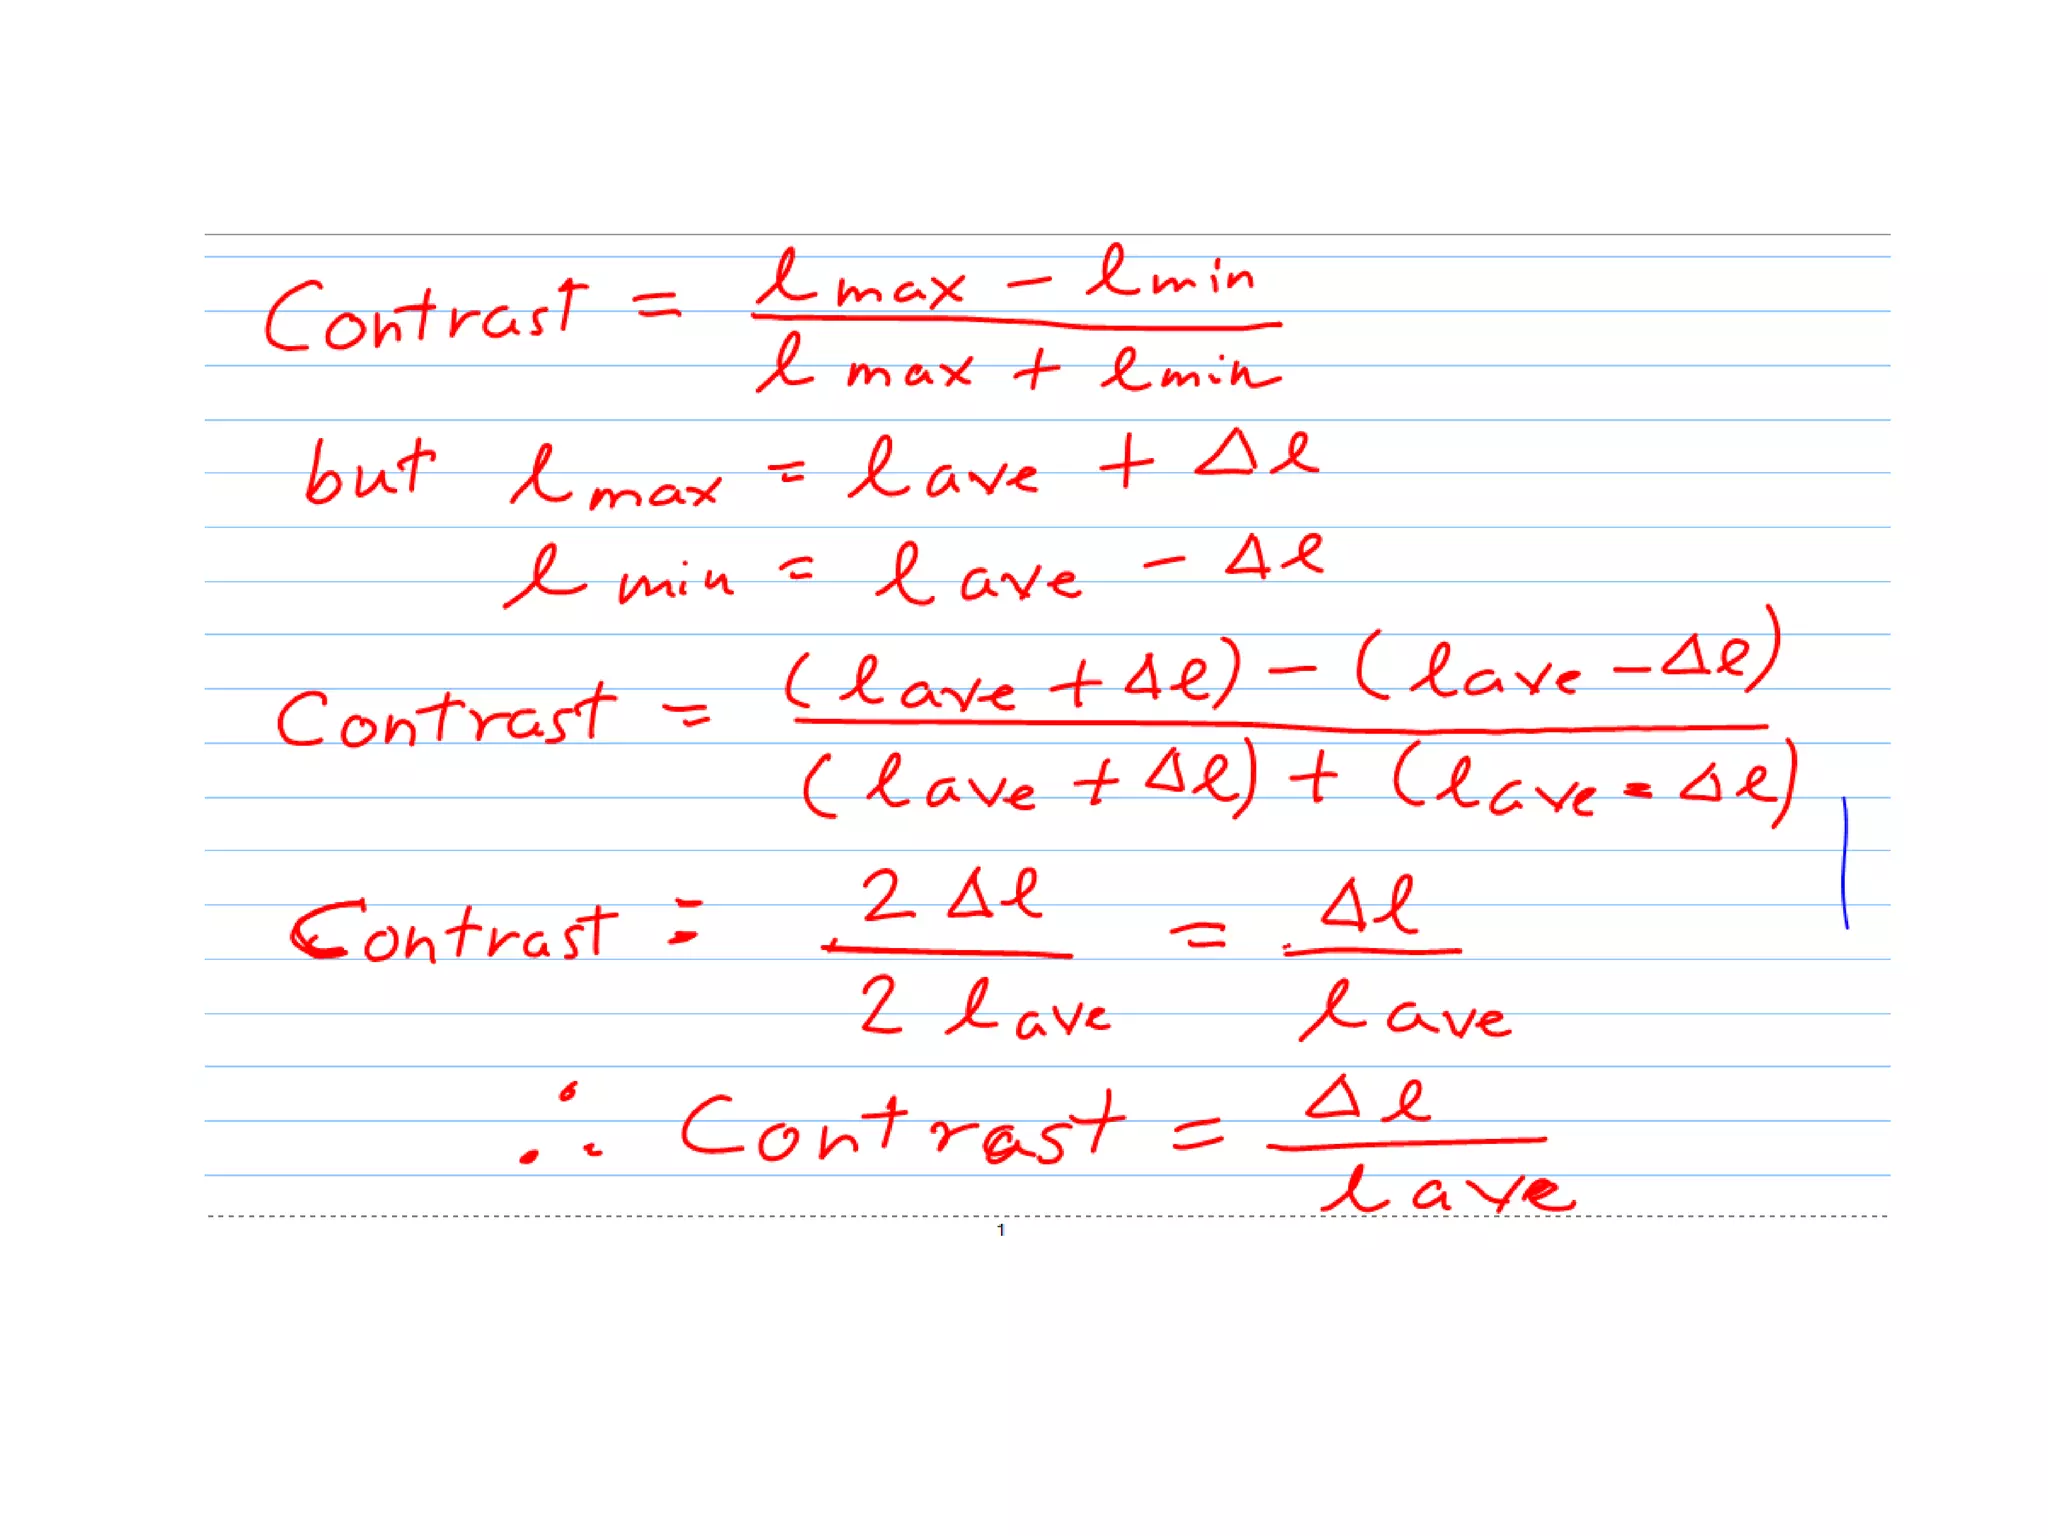 Contrast = (l max - l min) / (l max + l min)
but l max = l ave + Δl
l min = l ave - Δl
Contrast = ((l ave + Δl) - (l ave - Δl)) / ((l ave + Δl) + (l ave - Δl))
Contrast = 2 Δl / 2 l ave = Δl / l ave
∴ Contrast = Δl / l ave
1